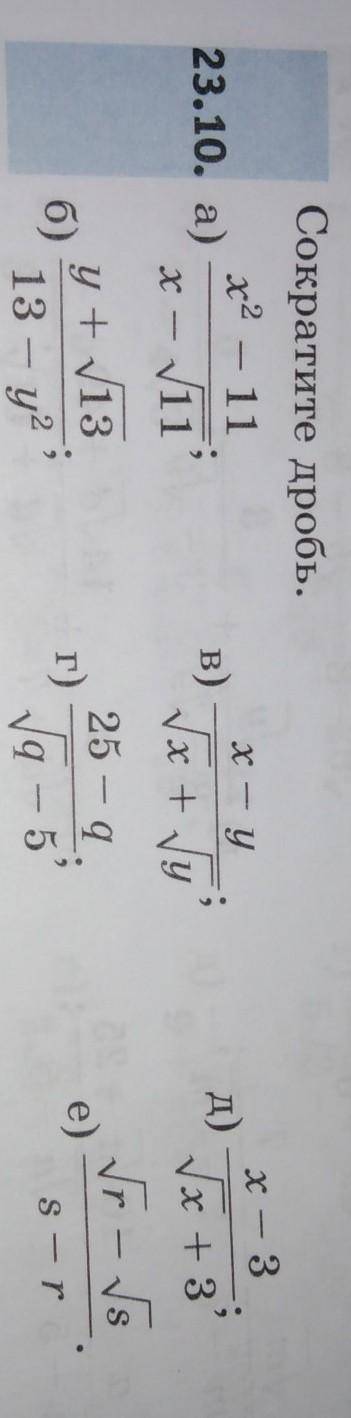 Сократите дробь.
23.10. а) \frac{x^2 - 11}{x - \sqrt{11}}; в) \frac{x - y}{\sqrt{x} + \sqrt{y}}; д) \frac{x - 3}{\sqrt{x} + 3};
б) \frac{y + \sqrt{13}}{13 - y^2}; г) \frac{25 - q}{\sqrt{q} - 5}; е) \frac{\sqrt{r} - \sqrt{s}}{s - r}.